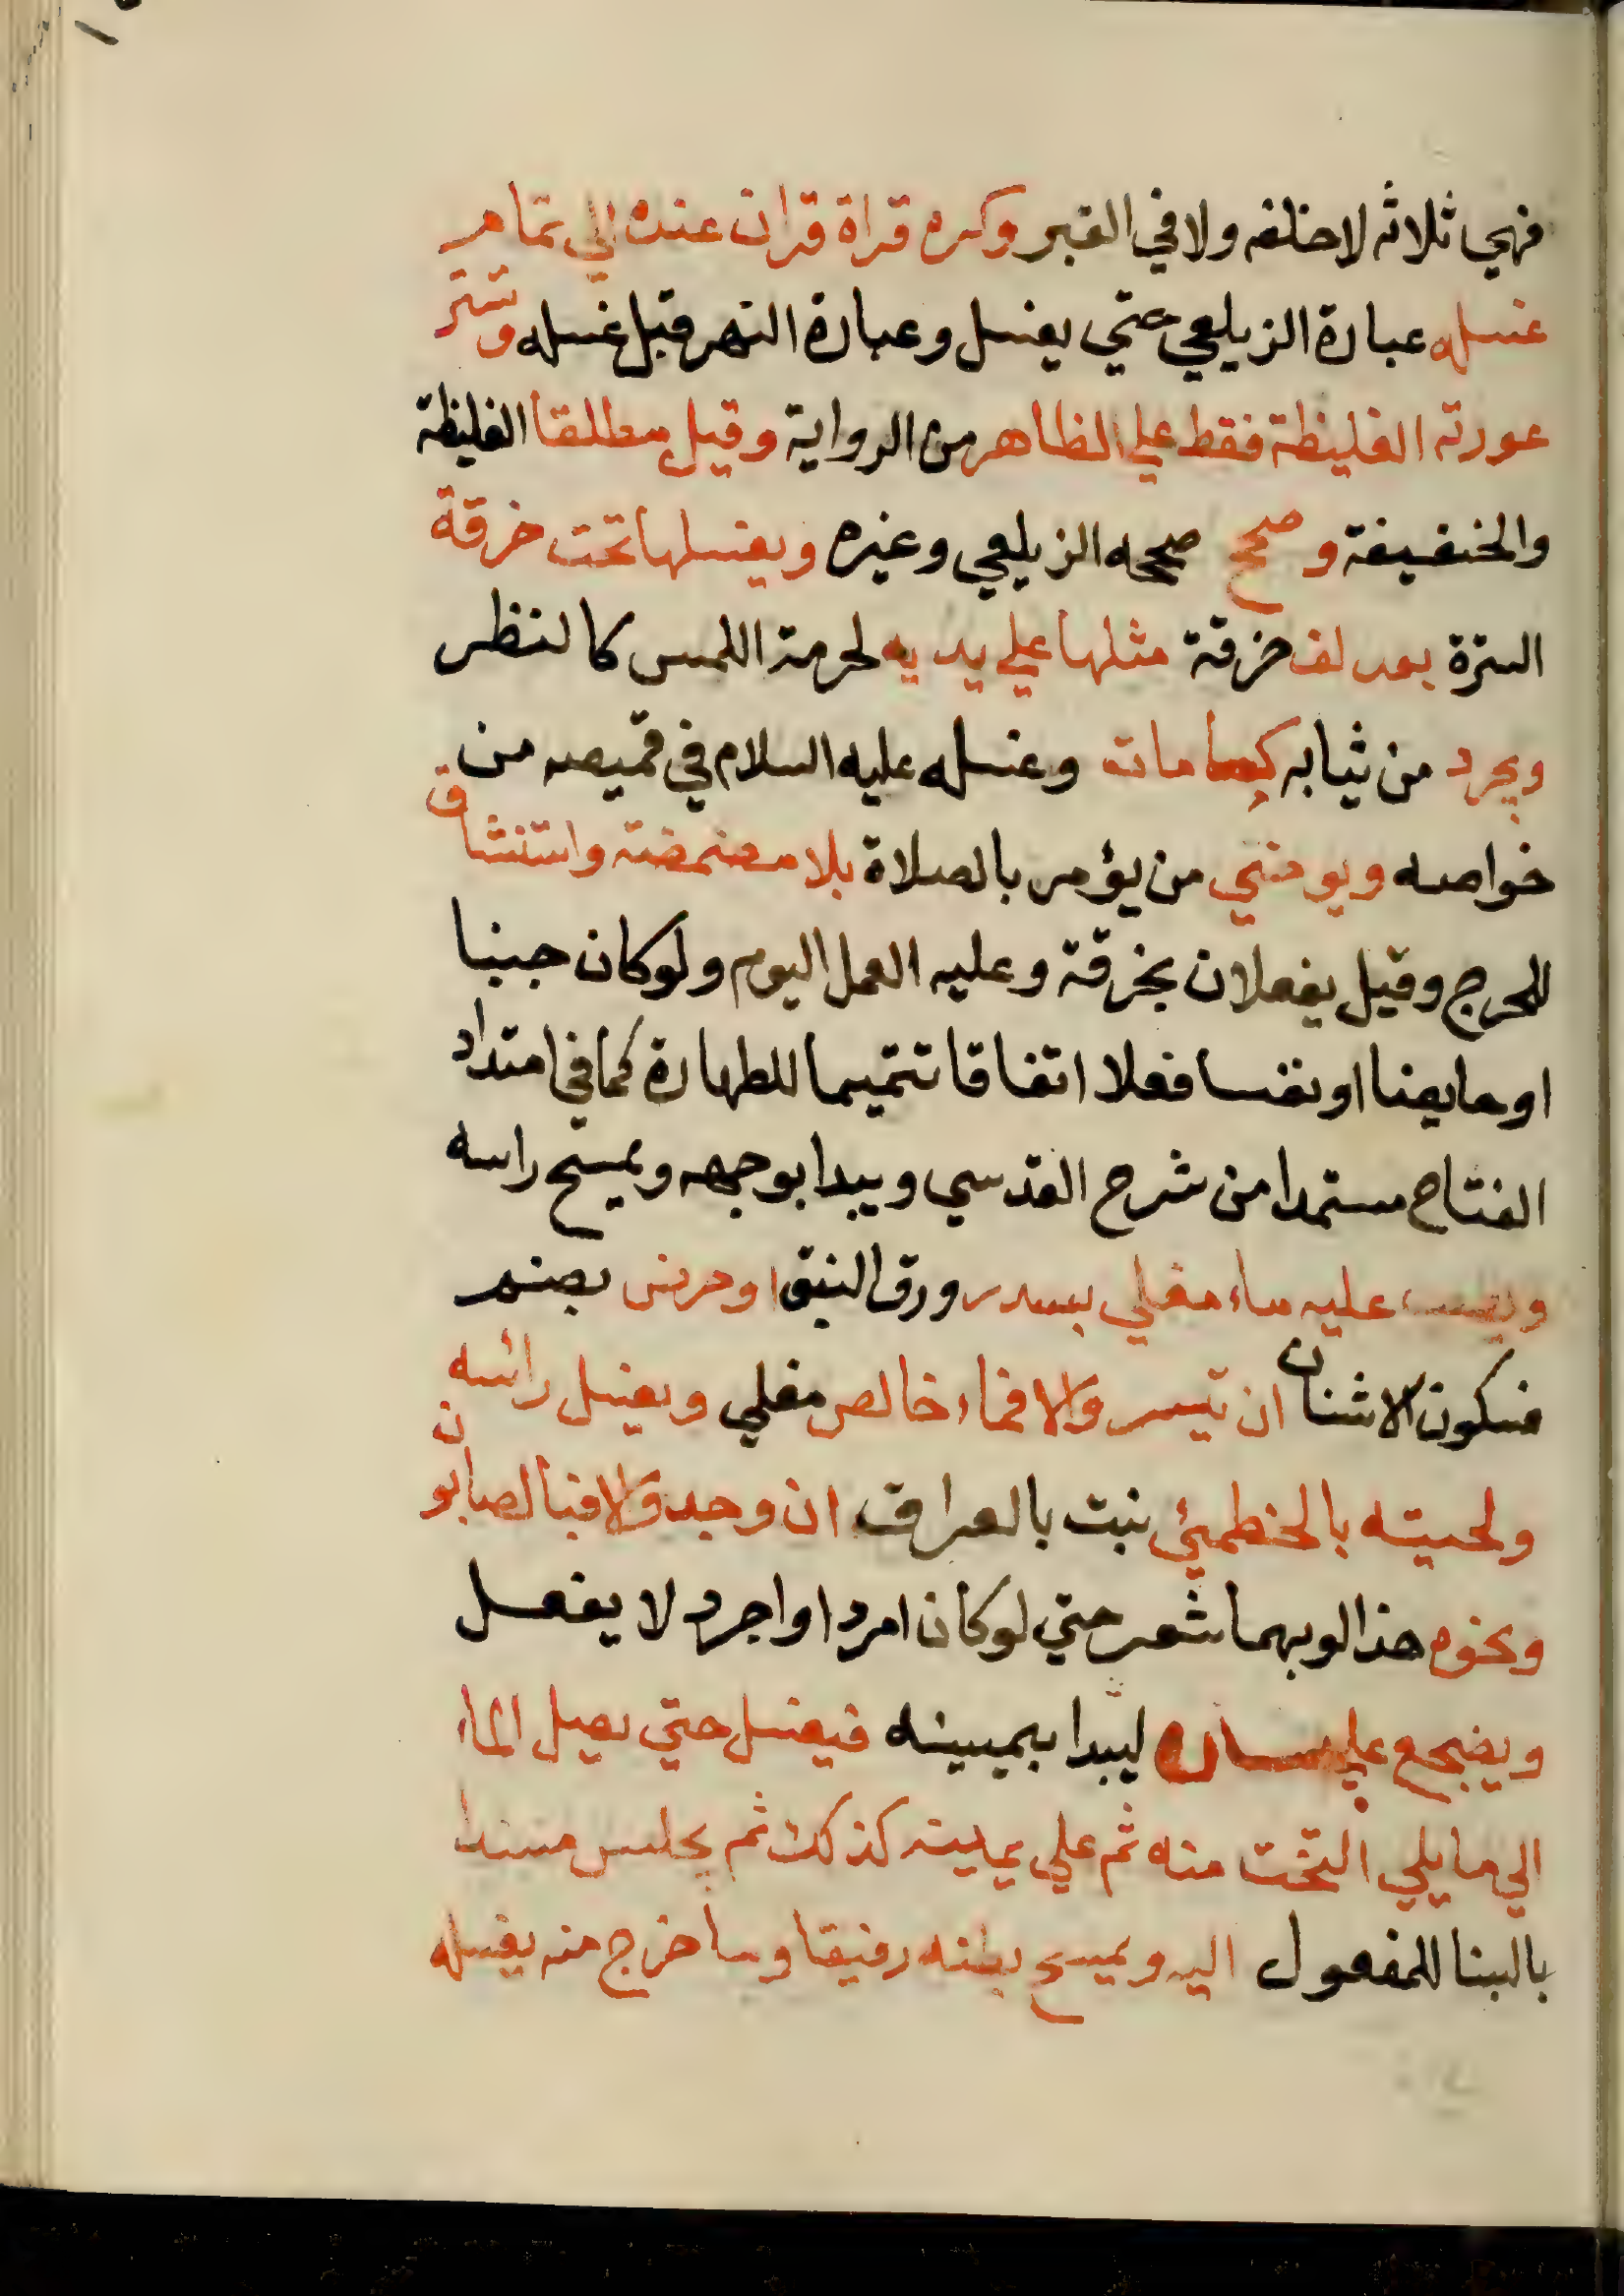 فهي ثلاثه لا خلفه ولا في القبر وكره قراة قران عنده الي تمام
غسله عبارة الزيلعي حتي يغسل وعبارة النهر قبل غسله وتستر
عورته الغليظة فقط علي الظاهر من الرواية وقيل مطلقا الغليظة
والخفيفة وصحح صححه الزيلعي وغيره ويغسلها تحت خرقة
السترة بعد لف خرقة مثلها علي يديه لحرمة اللمس كالنظر
ويجرد من ثيابه كما مات وغسله عليه السلام في قميصه من
خواصه ويوضي من يؤمر بالصلاة بلا مضمضة واستنشاق
للحرج وقيل يفعلان بخرقة وعليه العمل اليوم ولو كان جنبا
او حايضا او نفسا فعلا اتفاقا تتميما للطهارة كما في امتداد
الفتاح مستمدا من شرح القدسي ويبدا بوجهه ويمسح راسه
ويصب عليه ماء مغلي بسدر ورق النبق او حرض بضم
فسكون الاشنان ان تيسر والا فماء خالص مغلي ويغسل راسه
ولحيته بالخطمئ نبت بالعراق ان وجد والا فبالصابون
ونحوه هذا لو بهما شعر حتي لو كان امرد او اجرد لا يفعل
ويضجع علي يساره ليبدا بيمينه فيغسل حتي يصل الماء
الي ما يلي التخت منه ثم علي يمينه كذلك ثم يجلس مسندا
بالبنا للمفعول اليه ويمسح بطنه رفيقا وما خرج منه يغسله